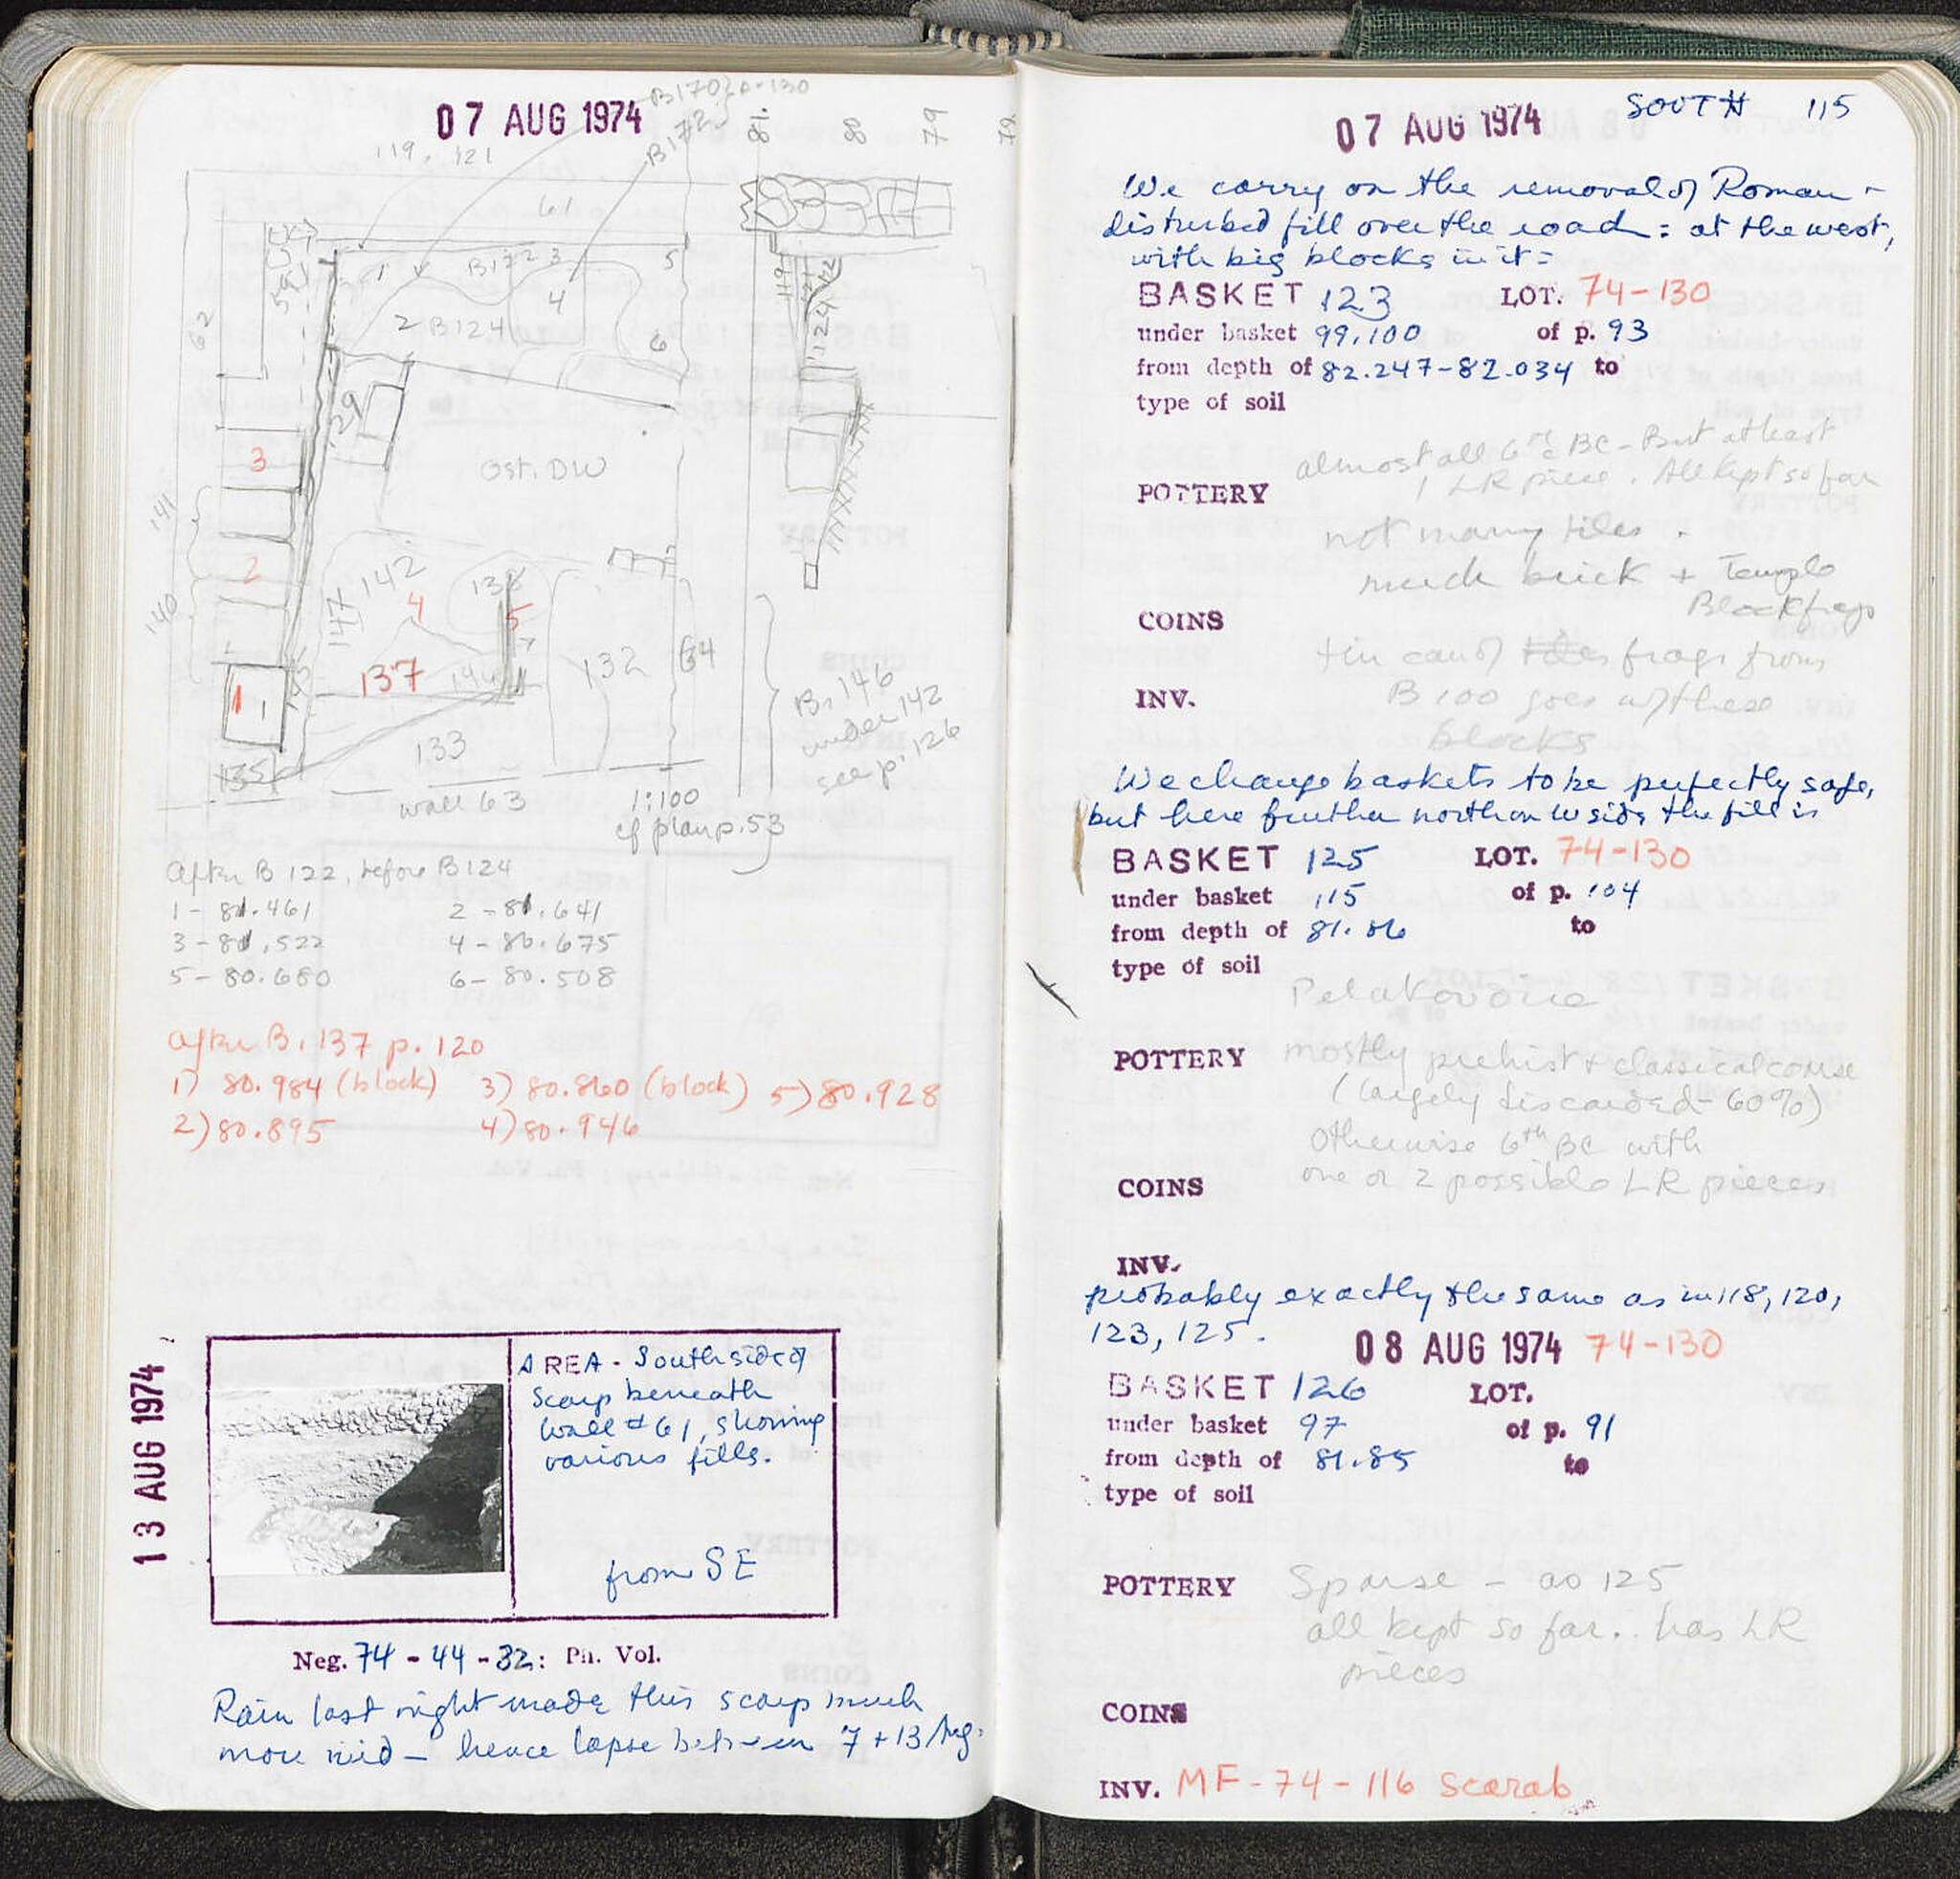 07 AUG 1974
B170 } A-130
B172 }
81. 80 79 78
119, 121
61
62
59
1 B122 3 5
2 B124 4 6
129
119 121 122
124
3
Ost. DW
141
2
140
142
147
4
138
5
137
144
132
64
1
133
135
wall 63
1:100
cf plan p. 53
B. 146
under 142
see p. 126
After B 122, before B124
1 - 81.461 2 - 81.641
3 - 81.522 4 - 80.675
5 - 80.680 6 - 80.508
After B. 137 p. 120
1) 80.984 (block) 3) 80.860 (block) 5) 80.928
2) 80.895 4) 80.946
13 AUG 1974
AREA - South side of
scarp beneath
wall # 61, showing
various fills.
from SE
Neg. 74 - 44 - 32: Ph. Vol.
Rain last night made this scarp much
more vivid — hence lapse between 7 + 13 Aug.
SOUTH 115
07 AUG 1974
We carry on the removal of Roman -
disturbed fill over the road = at the west,
with big blocks in it =
BASKET 123 LOT. 74-130
under basket 99, 100 of p. 93
from depth of 82.247-82.034 to
type of soil
almost all 6th c BC - But at least
1 LR piece. All kept so far
POTTERY
not many tiles.
much brick + Temple
Block frags
COINS
tin can of frags from
INV. B 100 goes w/these
blocks
We change baskets to be perfectly safe,
but here further north on W side the fill is
BASKET 125 LOT. 74-130
under basket 115 of p. 104
from depth of 81.86 to
type of soil
Pelakovouie
POTTERY mostly prehist + classical coarse
(largely discarded - 60%)
Otherwise 6th BC with
one or 2 possible LR pieces
COINS
INV.
probably exactly the same as in 118, 120,
123, 125.
08 AUG 1974 74-130
BASKET 126 LOT.
under basket 97 of p. 91
from depth of 81.85 to
type of soil
POTTERY Sparse - as 125
all kept so far.. has LR
pieces
COINS
INV. MF-74-116 scarab